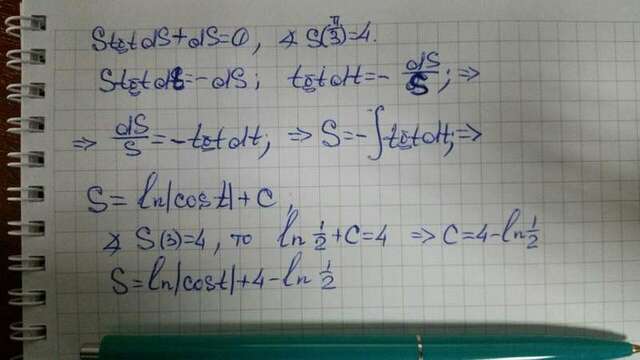 S tgt dS + dS = 0, ∡ S(π/3) = 4.
S tgt dt = - dS; tgt dt = - dS/S; ⇒
⇒ dS/S = - tgt dt; ⇒ S = - ∫ tgt dt; ⇒
S = ln|cost| + C,
∡ S(3) = 4, то ln 1/2 + C = 4 ⇒ C = 4 - ln 1/2
S = ln|cost| + 4 - ln 1/2